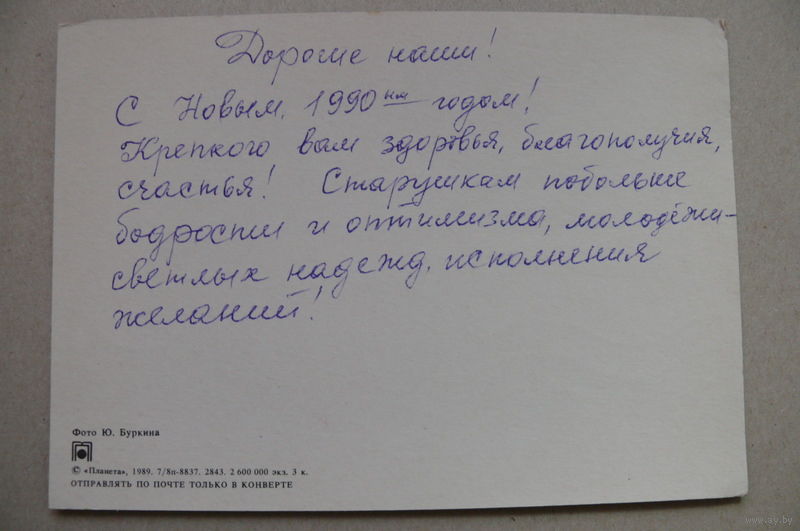 Дорогие наши!
С Новым, 1990ым годом!
Крепкого вам здоровья, благополучия,
счастья! Старушкам побольше
бодрости и оптимизма, молодёжи –
светлых надежд, исполнения
желаний!
Фото Ю. Буркина
© «Планета», 1989. 7/8п-8837. 2843. 2 600 000 экз. 3 к.
ОТПРАВЛЯТЬ ПО ПОЧТЕ ТОЛЬКО В КОНВЕРТЕ
www.ay.by